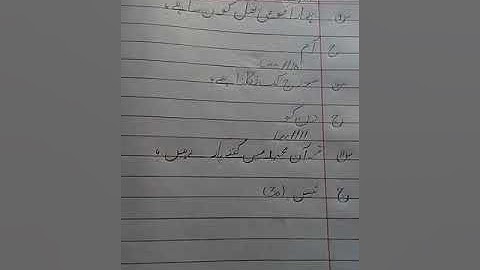 س ہمارا قومی پھل کون سا ہے؟
ج آم
س سورج کب نکلتا ہے؟
ج دن کو
س قرآن مجید میں کتنے پارے ہیں؟
ج تیس (30)